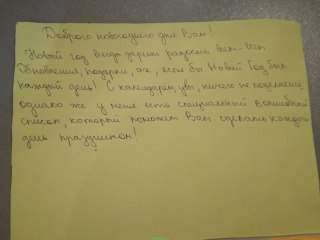 Доброго новогоднего дня Вам!
Новый год всегда дарит радость всем
Обновления, подарки, ах, если бы Новый Год был
каждый день! С календарём, увы, ничего не поделаешь,
однако же у меня есть специальный волшебный
список, который поможет Вам сделать каждый
день праздником!